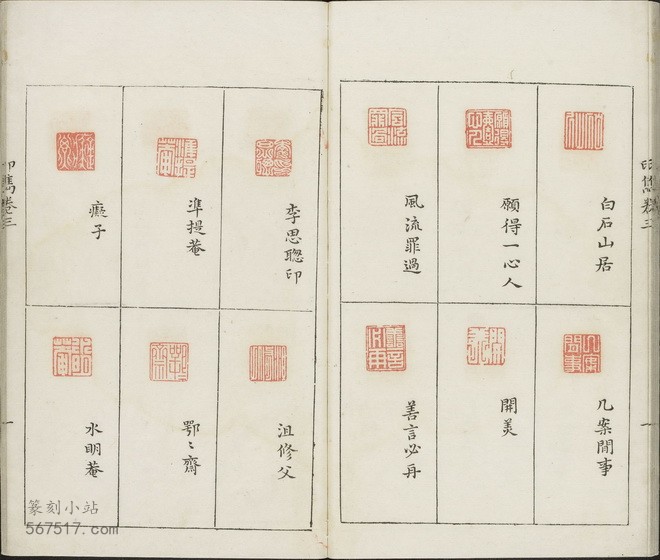 印雋卷三
白石山居
願得一心人
風流罪過
几案閒事
開美
善言必再
一
李思聦印
凖提菴
癡子
沮修父
鄂〻齋
水明菴
印雋卷三
一
篆刻小站
567517.com